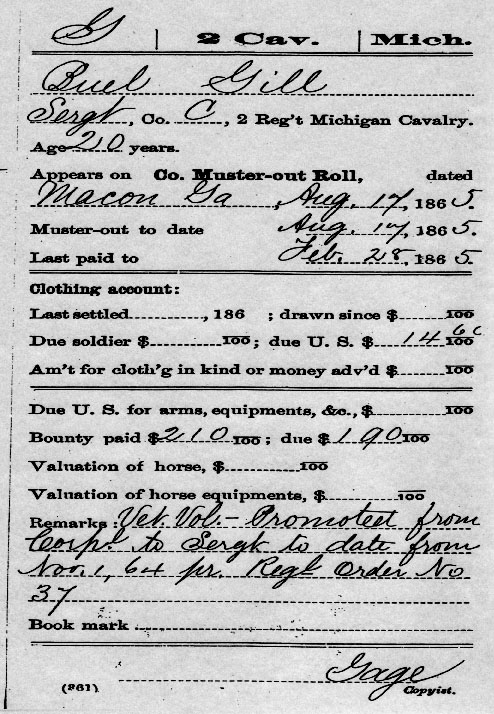 G | 2 Cav. | Mich.
Buel Gill
Sergt, Co. C, 2 Reg't Michigan Cavalry.
Age 20 years.
Appears on Co. Muster-out Roll, dated
Macon Ga, Aug. 17, 1865.
Muster-out to date Aug. 17, 1865.
Last paid to Feb. 28, 1865.
Clothing account:
Last settled, 186 ; drawn since $ 100
Due soldier $ 100; due U. S. $ 14 60 100
Am't for cloth'g in kind or money adv'd $ 100
Due U. S. for arms, equipments, &c., $ 100
Bounty paid $ 210 100; due $ 190 100
Valuation of horse, $ 100
Valuation of horse equipments, $ 100
Remarks: Vet. Vol. - Promoted from
Corpl. to Sergt to date from
Nov. 1, 64 pr. Regl Order No
37
Book mark
Gage
(861) Copyist.